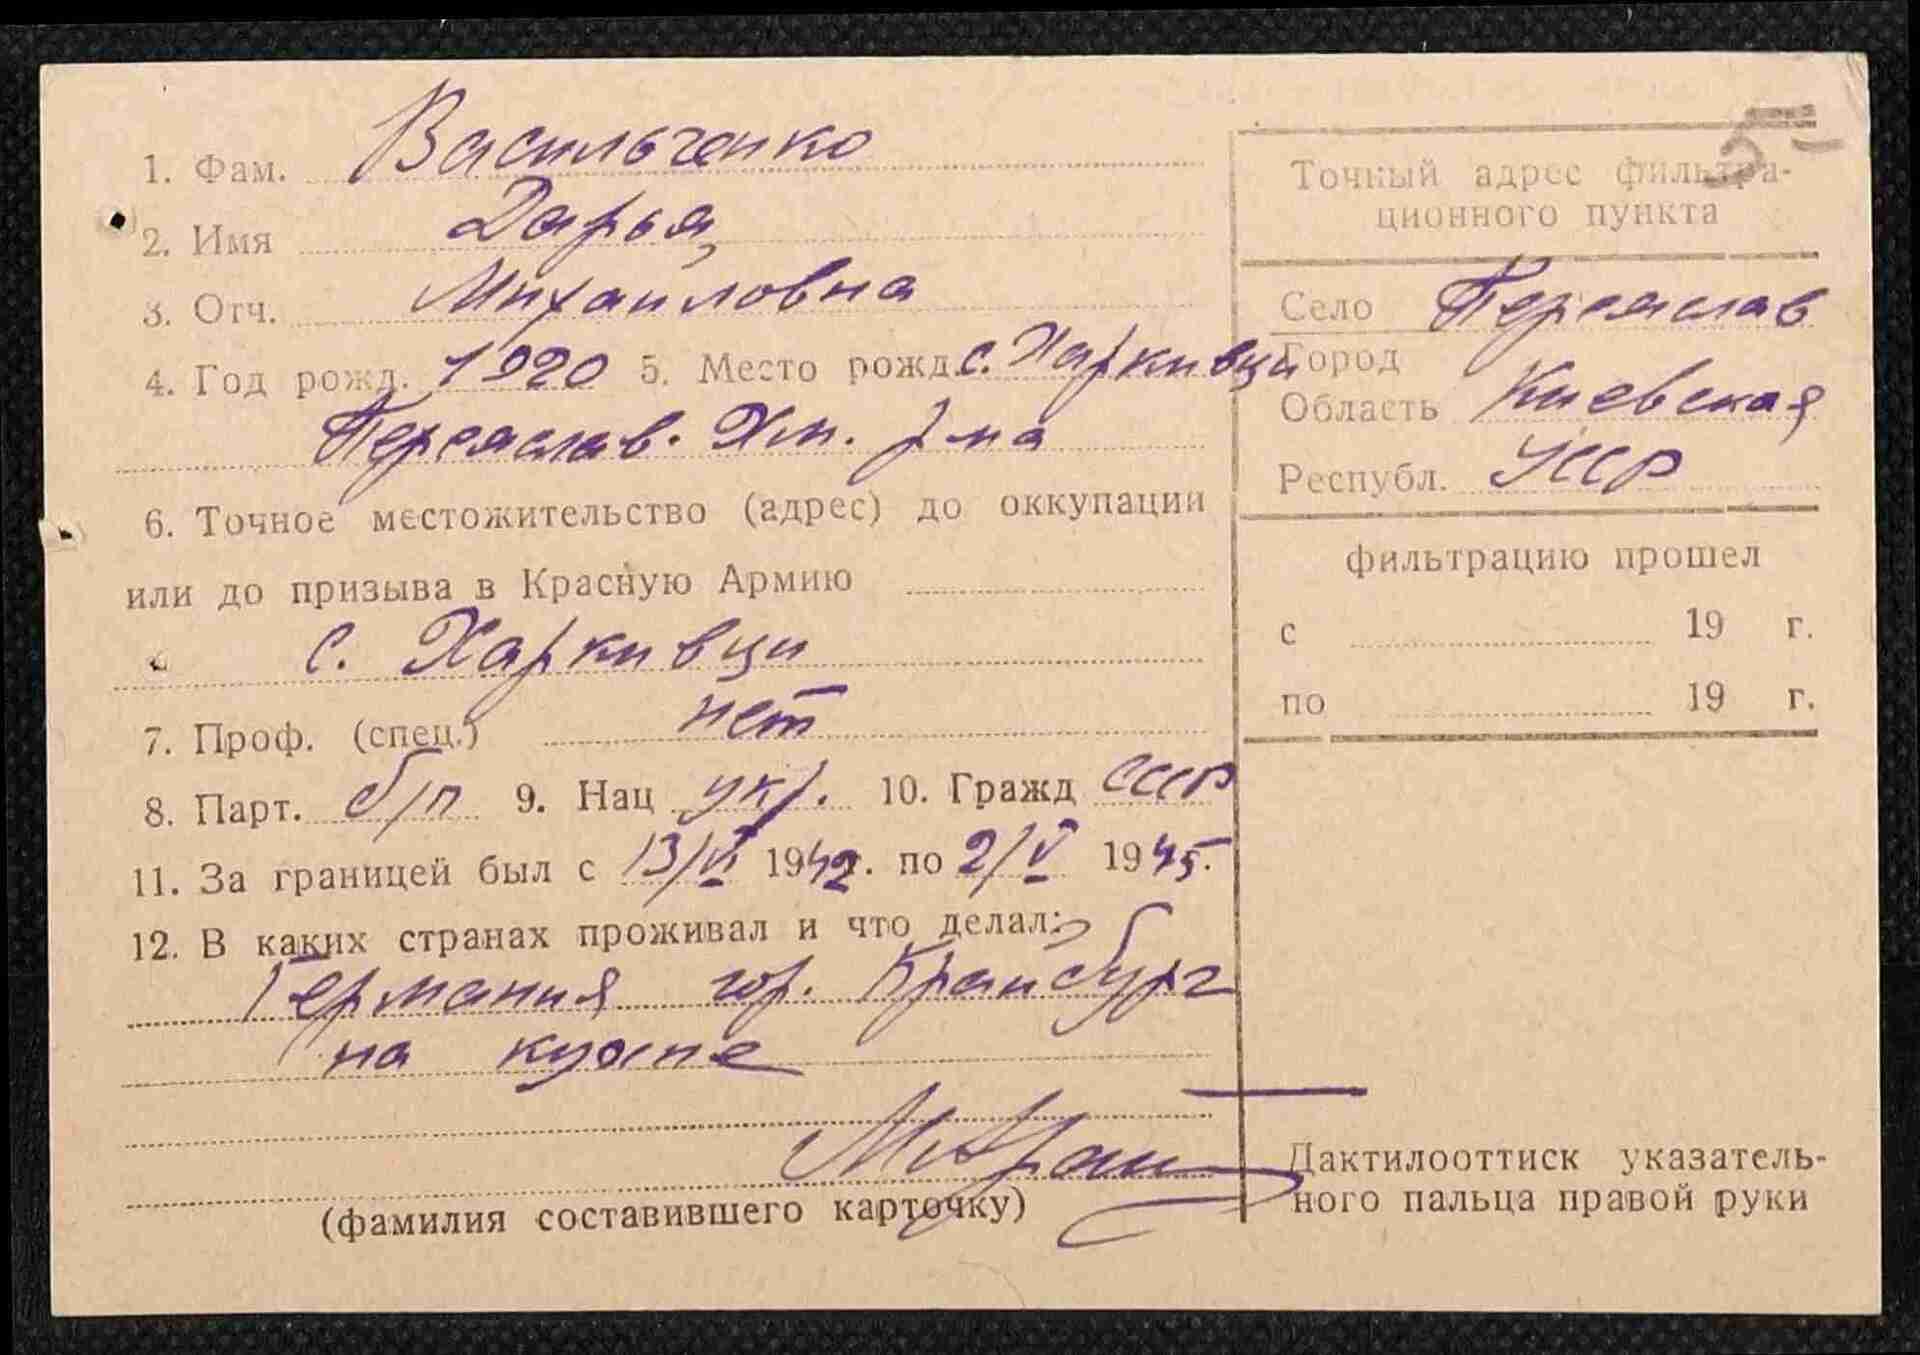 1. Фам. Васильченко
2. Имя Дарья,
3. Отч. Михайловна
4. Год рожд. 1920 5. Место рожд. с. Харкивци
Переяслав. Хм. р-на
6. Точное местожительство (адрес) до оккупации
или до призыва в Красную Армию
с. Харкивци
7. Проф. (спец.) нет
8. Парт. б/п 9. Нац укр. 10. Гражд СССР
11. За границей был с 13/VI 1942 г. по 2/V 1945.
12. В каких странах проживал и что делал:
Германия гор. Крайбург
на кухне
(фамилия составившего карточку)
5
Точный адрес фильтра-
ционного пункта
Село Переяслав
Город
Область Киевская
Республ. УССР
фильтрацию прошел
с 19 г.
по 19 г.
Дактилооттиск указатель-
ного пальца правой руки